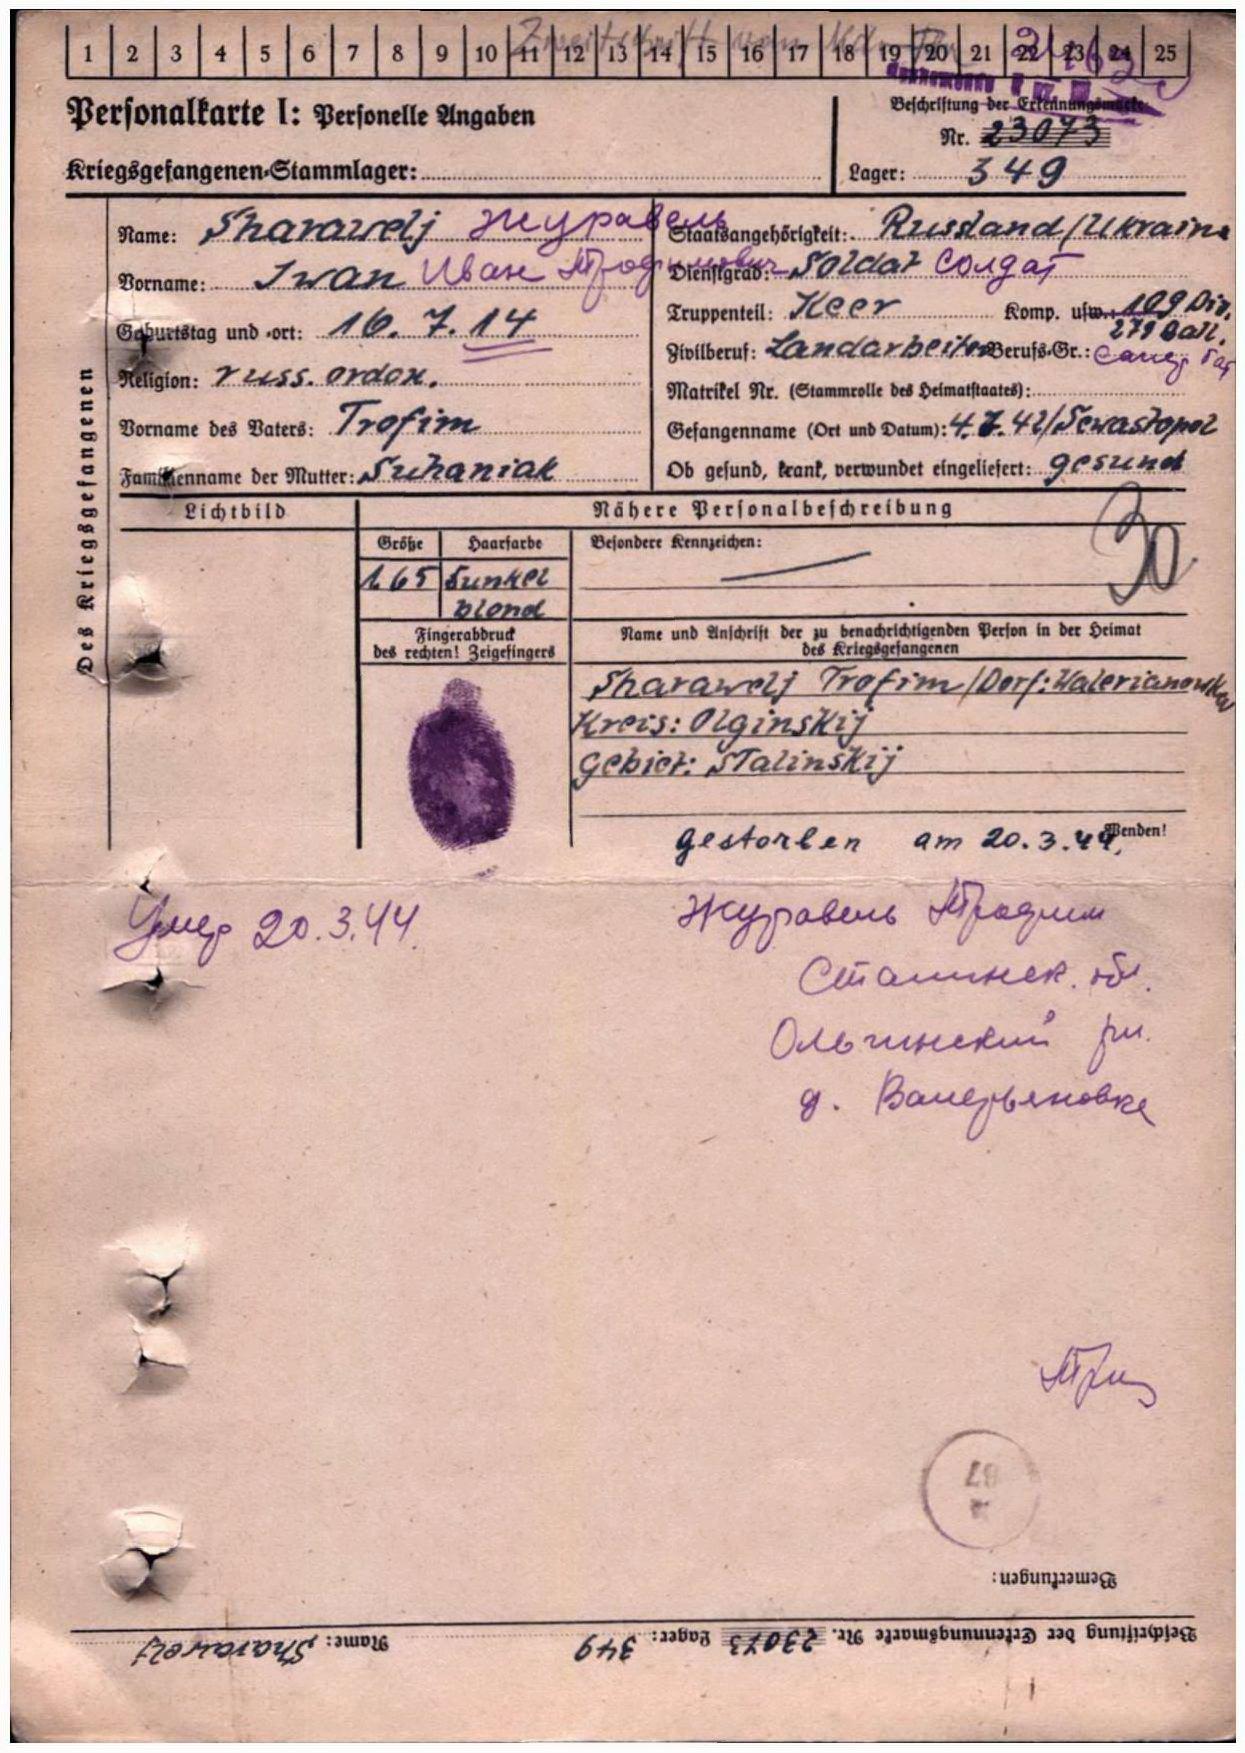 Zweitschrift vom
1 2 3 4 5 6 7 8 9 10 11 12 13 14 15 16 17 18 19 20 21 22 23 24 25
Personalkarte I: Personelle Angaben
Beschriftung der Erkennungsmarke
Nr. 23073
Kriegsgefangenen-Stammlager:
Lager: 349
Des Kriegsgefangenen
Name: Sharawelj Журавель
Staatsangehörigkeit: Russland/Ukraine
Vorname: Iwan Иван Трофимович
Dienstgrad: Soldat Солдат
Truppenteil: Heer Komp. usw.: 109 Div.
279 Batl.
Geburtstag und -ort: 16.7.14
Zivilberuf: Landarbeiter Berufs-Gr.: Сапер бат
Religion: russ. ordox.
Matrikel Nr. (Stammrolle des Heimatstaates):
Vorname des Vaters: Trofim
Gefangenname (Ort und Datum): 4.7.42/Sewastopol
Familienname der Mutter: Suhaniak
Ob gesund, krank, verwundet eingeliefert: gesund
Lichtbild
Nähere Personalbeschreibung
30
Größe Haarfarbe Besondere Kennzeichen:
165 Dunkel
blond
Fingerabdruck
des rechten! Zeigefingers
Name und Anschrift der zu benachrichtigenden Person in der Heimat
des Kriegsgefangenen
Sharawelj Trofim/Dorf: Walerianowka
Kreis: Olginskij
Gebiet: Stalinskij
Wenden!
gestorben am 20.3.44.
Умер 20.3.44.
Журавель Трофим
Сталинск. обл.
Ольгинский рн.
д. Валерьяновке
67
Bemerkungen:
Beschriftung der Erkennungsmarke Nr. 23073 Lager: 349 Name: Sharawelj